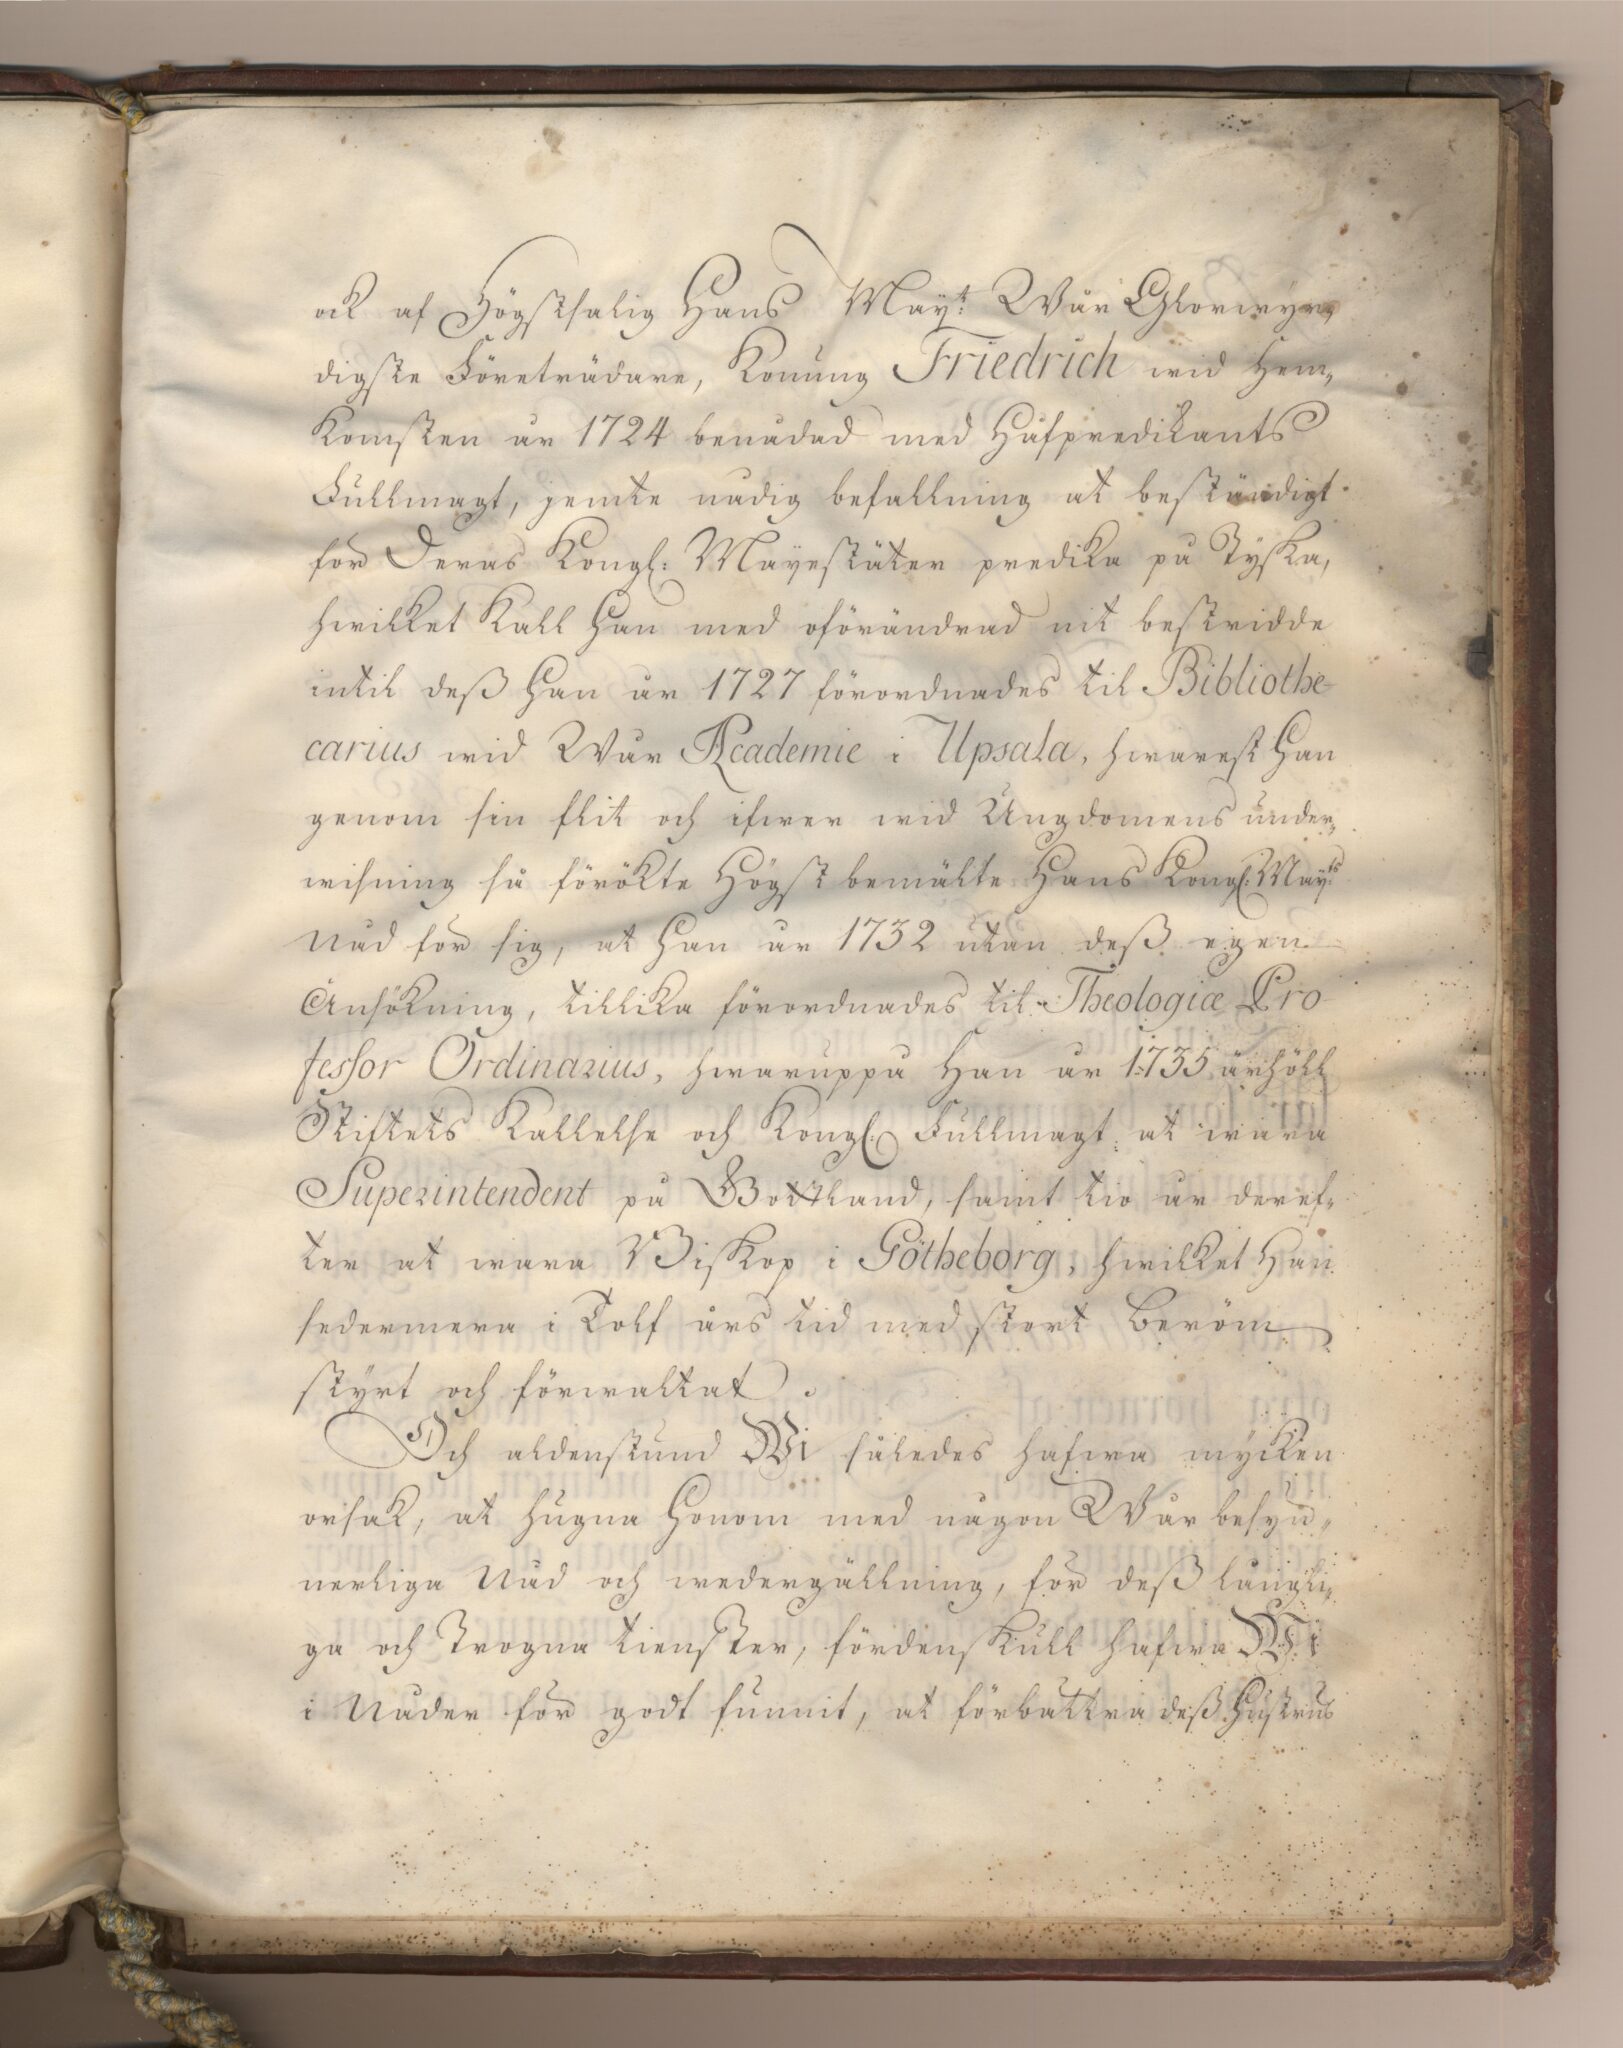 ock af Högstsalig Hans May:t Wår Glorwyr,
digste Företrädare, Konung Friedrich wid Hem,
komsten år 1724 benådad med Håfpredikants
Fullmagt, jemte nådig befallning at beständigt
för Deras Kongl: Mayestäter predika på Tyska,
hwilket kall Han med oförändrad nit bestridde
intil deß Han år 1727 förordnades til Bibliothe-
carius wid Wår Academie i Upsala, hwarest Han
genom sin flit och ifwer wid Ungdomens under,
wisning så förökte Högst bemälte Hans Kongl: May:ts
Nåd för sig, at Han år 1732 utan deß egen
Ansökning, tillika förordnades til Theologiæ Pro
fessor Ordinarius, hwaruppå Han år 1735 ärhöll
Stiftets Kallelse och Kongl: Fullmagt at wara
Superintendent på Gottland, samt tio år deref,
ter at wara Biskop i Götheborg, hwilket Han
sedermera i Tolf års tid med stort Beröm
styrt och förwaltat.
Och aldenstund Wi således hafwa mycken
orsak, at hugna Honom med någon Wår besyn,
nerliga Nåd och wedergällning, för deß långli,
ga och Trogna tienster, fördenskull hafwa Wi
i Nåder för godt funnit, at förbättra deß Hustrus